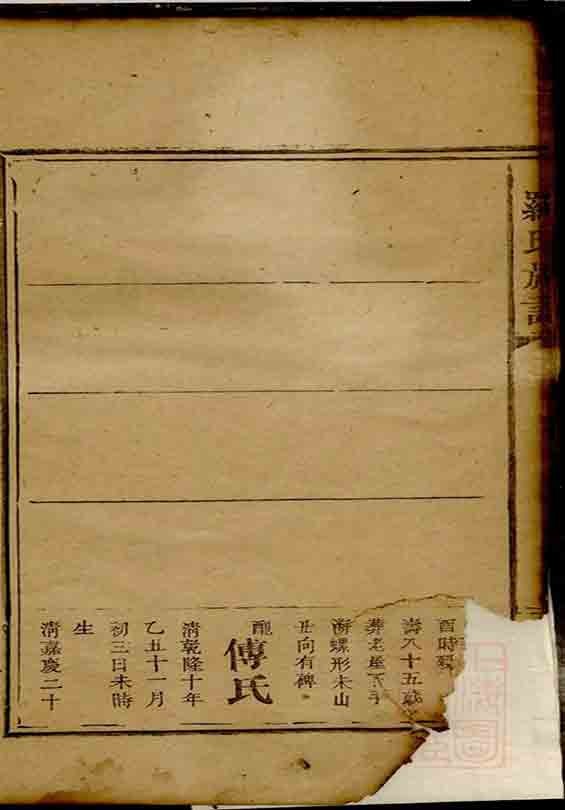 羅氏族譜
酉時
壽八十五歲
葬老屋下手
螺形未山
丑向有碑
配
傅氏
清乾隆十年
乙丑十一月
初三日未時
生
清嘉慶二十